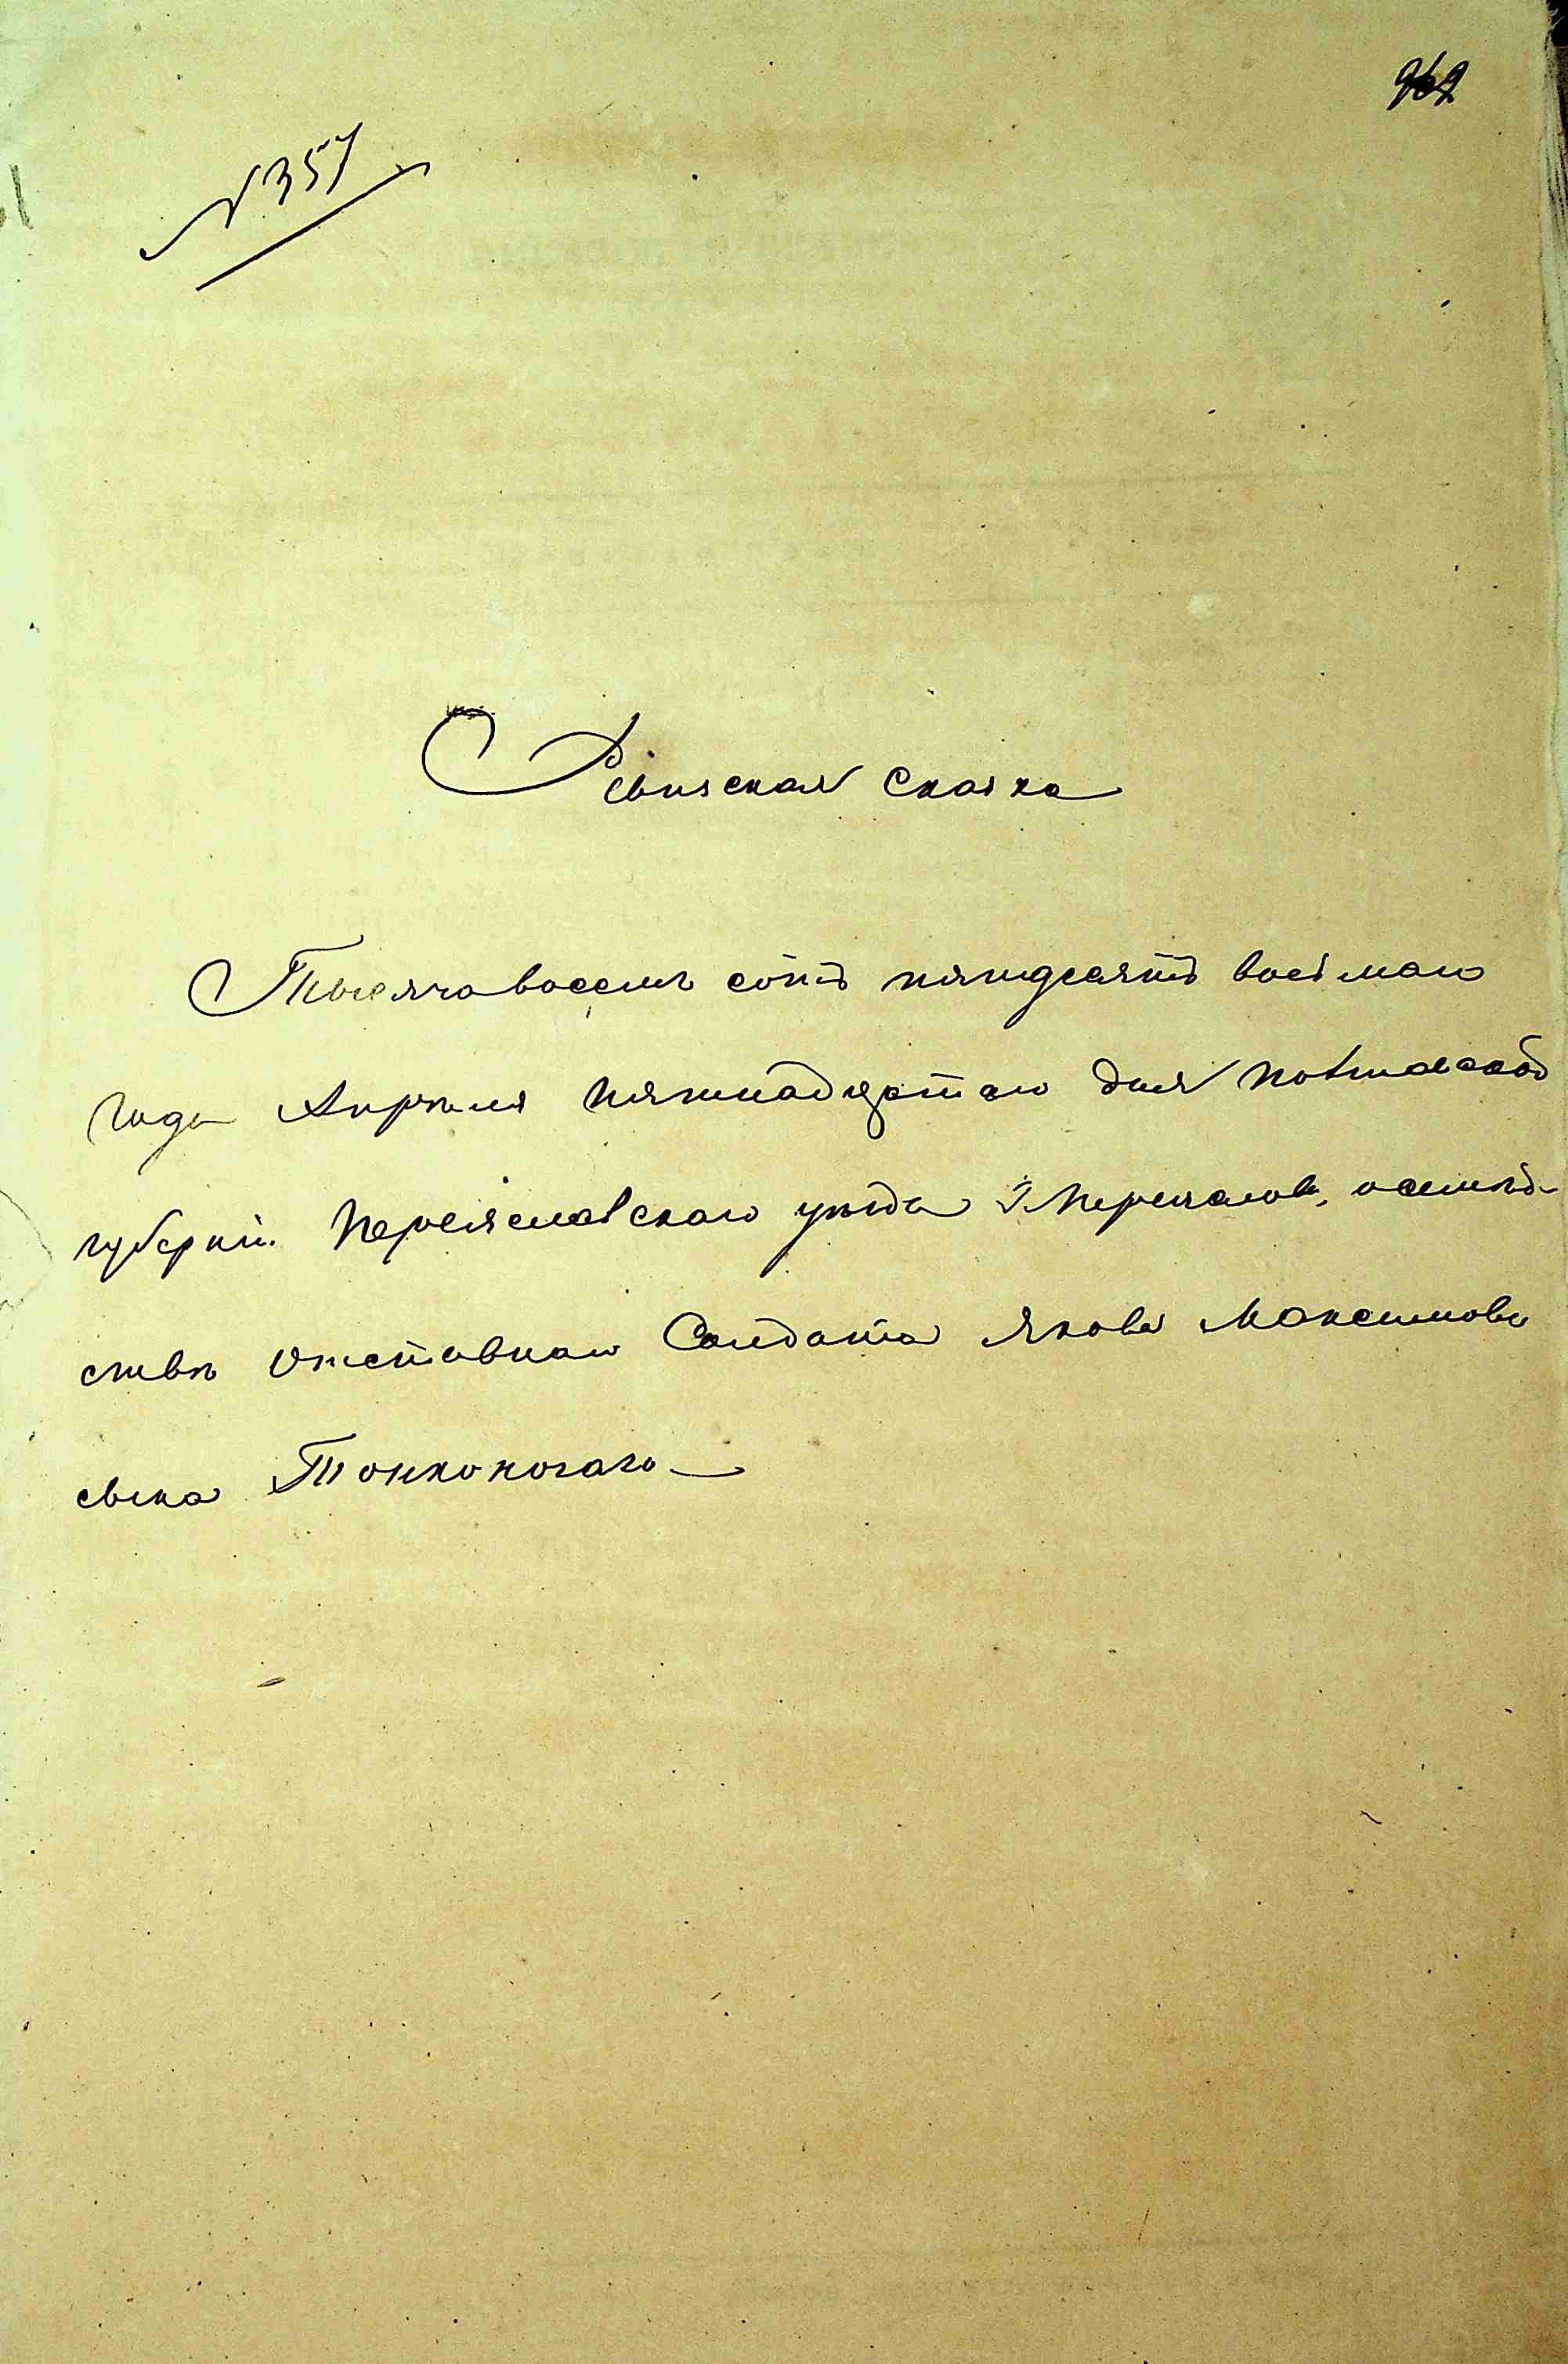 962
№ 357
Ревизская сказка
Тысяча восемь сотъ пятдесятъ восьмаго
года Апреля пятнадцатаго дня Полтавской
губерніи Переяславскаго уезда о семей-
стве отставнаго Солдата Якова Максимова
сына Тонконогаго